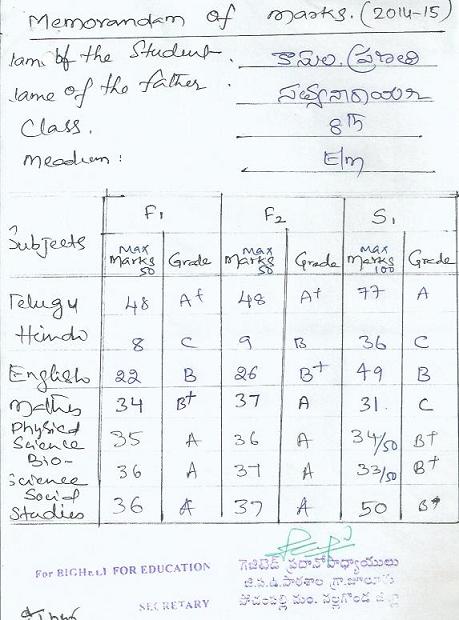 Memorandam of marks. (2014-15)
Name of the Student . కాసుల. ప్రణతి
Name of the father . సత్యనారాయణ
Class . 8th
Meadium : E/m
Subjects F1 F2 S1
Max Marks 50 Grade Max Marks 50 Grade Max Marks 100 Grade
Telugu 48 A+ 48 A+ 77 A
Hindo 8 C 9 B 36 C
English 22 B 26 B+ 49 B
Maths 34 B+ 37 A 31. C
Physical Science 35 A 36 A 34/50 B+
Bio-Science 36 A 37 A 33/50 B+
Social Studies 36 A 37 A 50 B+
గెజిటెడ్ ప్రధానోపాధ్యాయులు
For RIGHT FOR EDUCATION జి.ప.ఉ.పాఠశాల గ్రా.జూలూరు
SECRETARY పోచంపల్లి మం. నల్లగొండ జిల్లా